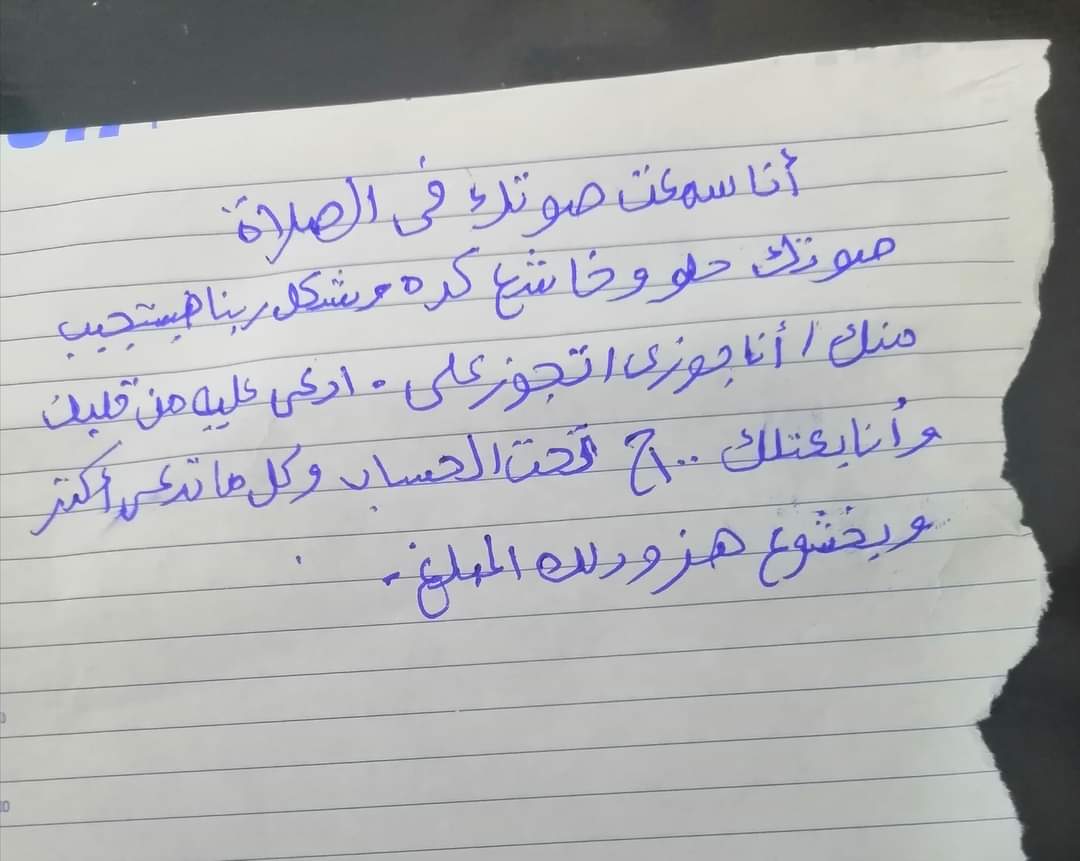 أنا سمعت صوتك فى الصلاة
صوتك حلو وخاشع كده وشكل ربنا هيستجيب
منك / أنا جوزى اتجوز على . ادعى عليه من قلبك
وأنا بعتلك ..ج تحت الحساب وكل ما تدعى أكتر
وبخشوع هزودلك المبلغ .